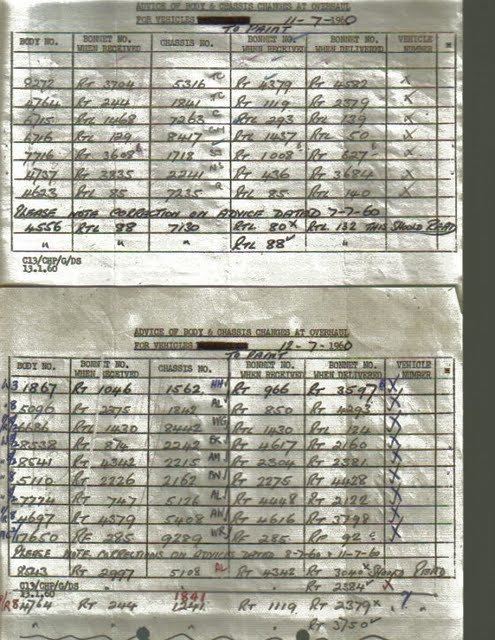 ADVICE OF BODY & CHASSIS CHANGES AT OVERHAUL
FOR VEHICLES 11-7-1960
TO PAINT
BODY NO. BONNET NO. WHEN RECEIVED CHASSIS NO. BONNET NO. WHEN RECEIVED BONNET NO. WHEN DELIVERED VEHICLE NUMBER
9272 RT 3704 5316 TC RT 4379 RT 4587 X
4764 RT 244 1841 TC RT 1119 RT 2379 X
6715 RTL 1468 7263 C RTL 293 RTL 139 X
6716 RTL 129 8417 RTL 1437 RTL 50 X
7716 RT 3608 1718 RT 1008 RT 627 X
4737 RT 3835 2241 RT 436 RT 3684 X
4623 RTL 85 7235 RTL 85 RTL 140 X
PLEASE NOTE CORRECTION ON ADVICE DATED 7-7-60
4556 RTL 88 7130 RTL 80 X RTL 132 THIS SHOULD READ
" " " RTL 88 ✓ "
C13/CHP/G/DS
13.1.60
ADVICE OF BODY & CHASSIS CHANGES AT OVERHAUL
FOR VEHICLES 12-7-1960
TO PAINT
BODY NO. BONNET NO. WHEN RECEIVED CHASSIS NO. BONNET NO. WHEN RECEIVED BONNET NO. WHEN DELIVERED VEHICLE NUMBER
1867 RT 1046 1562 HH RT 966 RT 3597 X
5090 RT 2275 1842 AL RT 850 RT 4293 X
4686 RTL 1430 8442 WG RTL 1430 RTL 124 X
8538 RT 2242 RT 4617 RT 2160 X
8541 RT 4342 2215 AM RT 2304 RT 2381 X
5110 RT 2226 2162 RT 2275 RT 4428 X
7224 RT 747 5126 AL RT 4448 RT 2122 X
4697 RT 4379 5408 AW RT 4616 RT 3798 X
7650 RF 285 9289 WR RT 285 RP 92 X
PLEASE NOTE CORRECTIONS ON ADVICES DATED 8-7-60 & 11-7-60
8543 RT 2997 5108 AL RT 4342 RT 3040 X SHOULD READ
C13/CHP/G/DS RT 2384 ✓ X
13.1.60
1841
4764 RT 244 1241 RT 1119 RT 2379 X " "
RT 3750 ✓